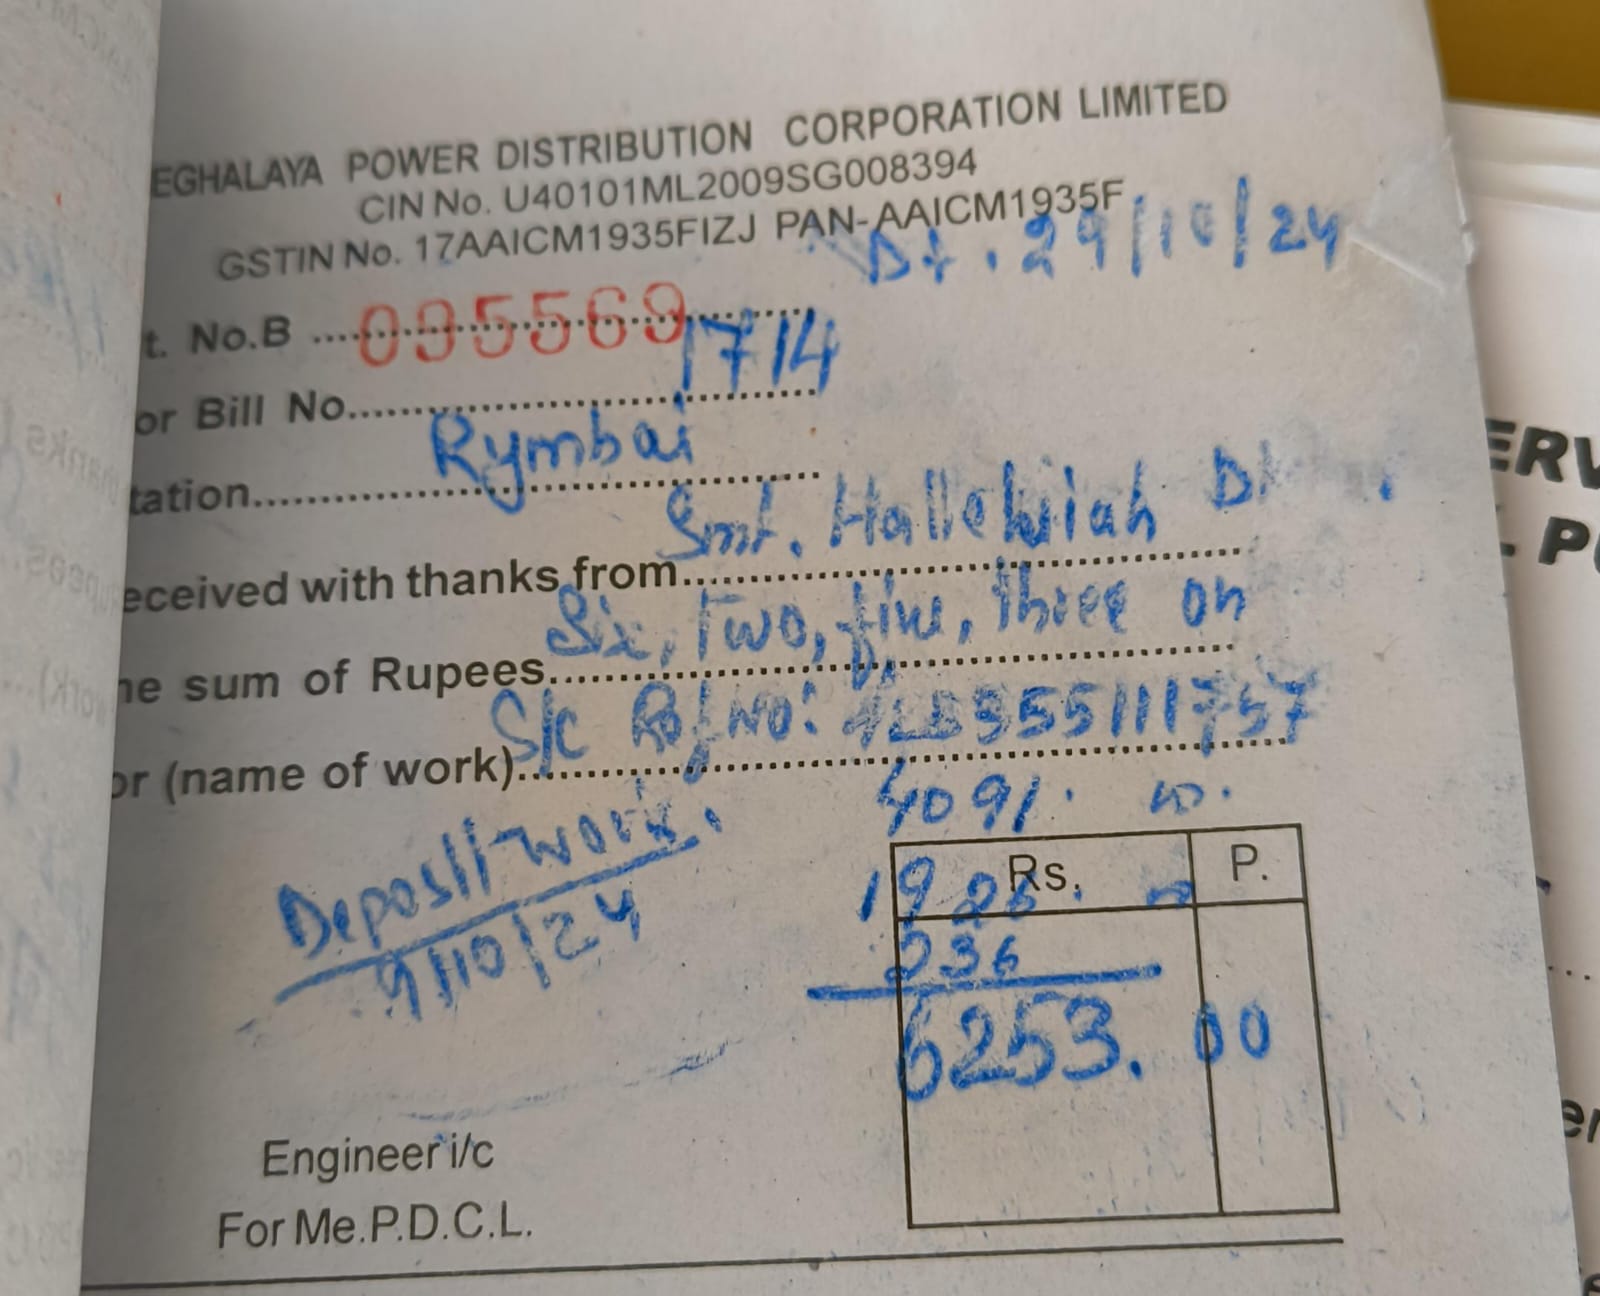 EGHALAYA POWER DISTRIBUTION CORPORATION LIMITED
CIN No. U40101ML2009SG008394
GSTIN No. 17AAICM1935FIZJ PAN-AAICM1935F
Dt. 29/10/24
t. No.B 095569
or Bill No. 1714
tation Rymbai
eceived with thanks from Smt. Halleluiah
he sum of Rupees Six, Two, five, three on
or (name of work) S/c
4091.
Deposit work.
Rs. P.
236
6253. 00
Engineer i/c
For Me.P.D.C.L.
ERV